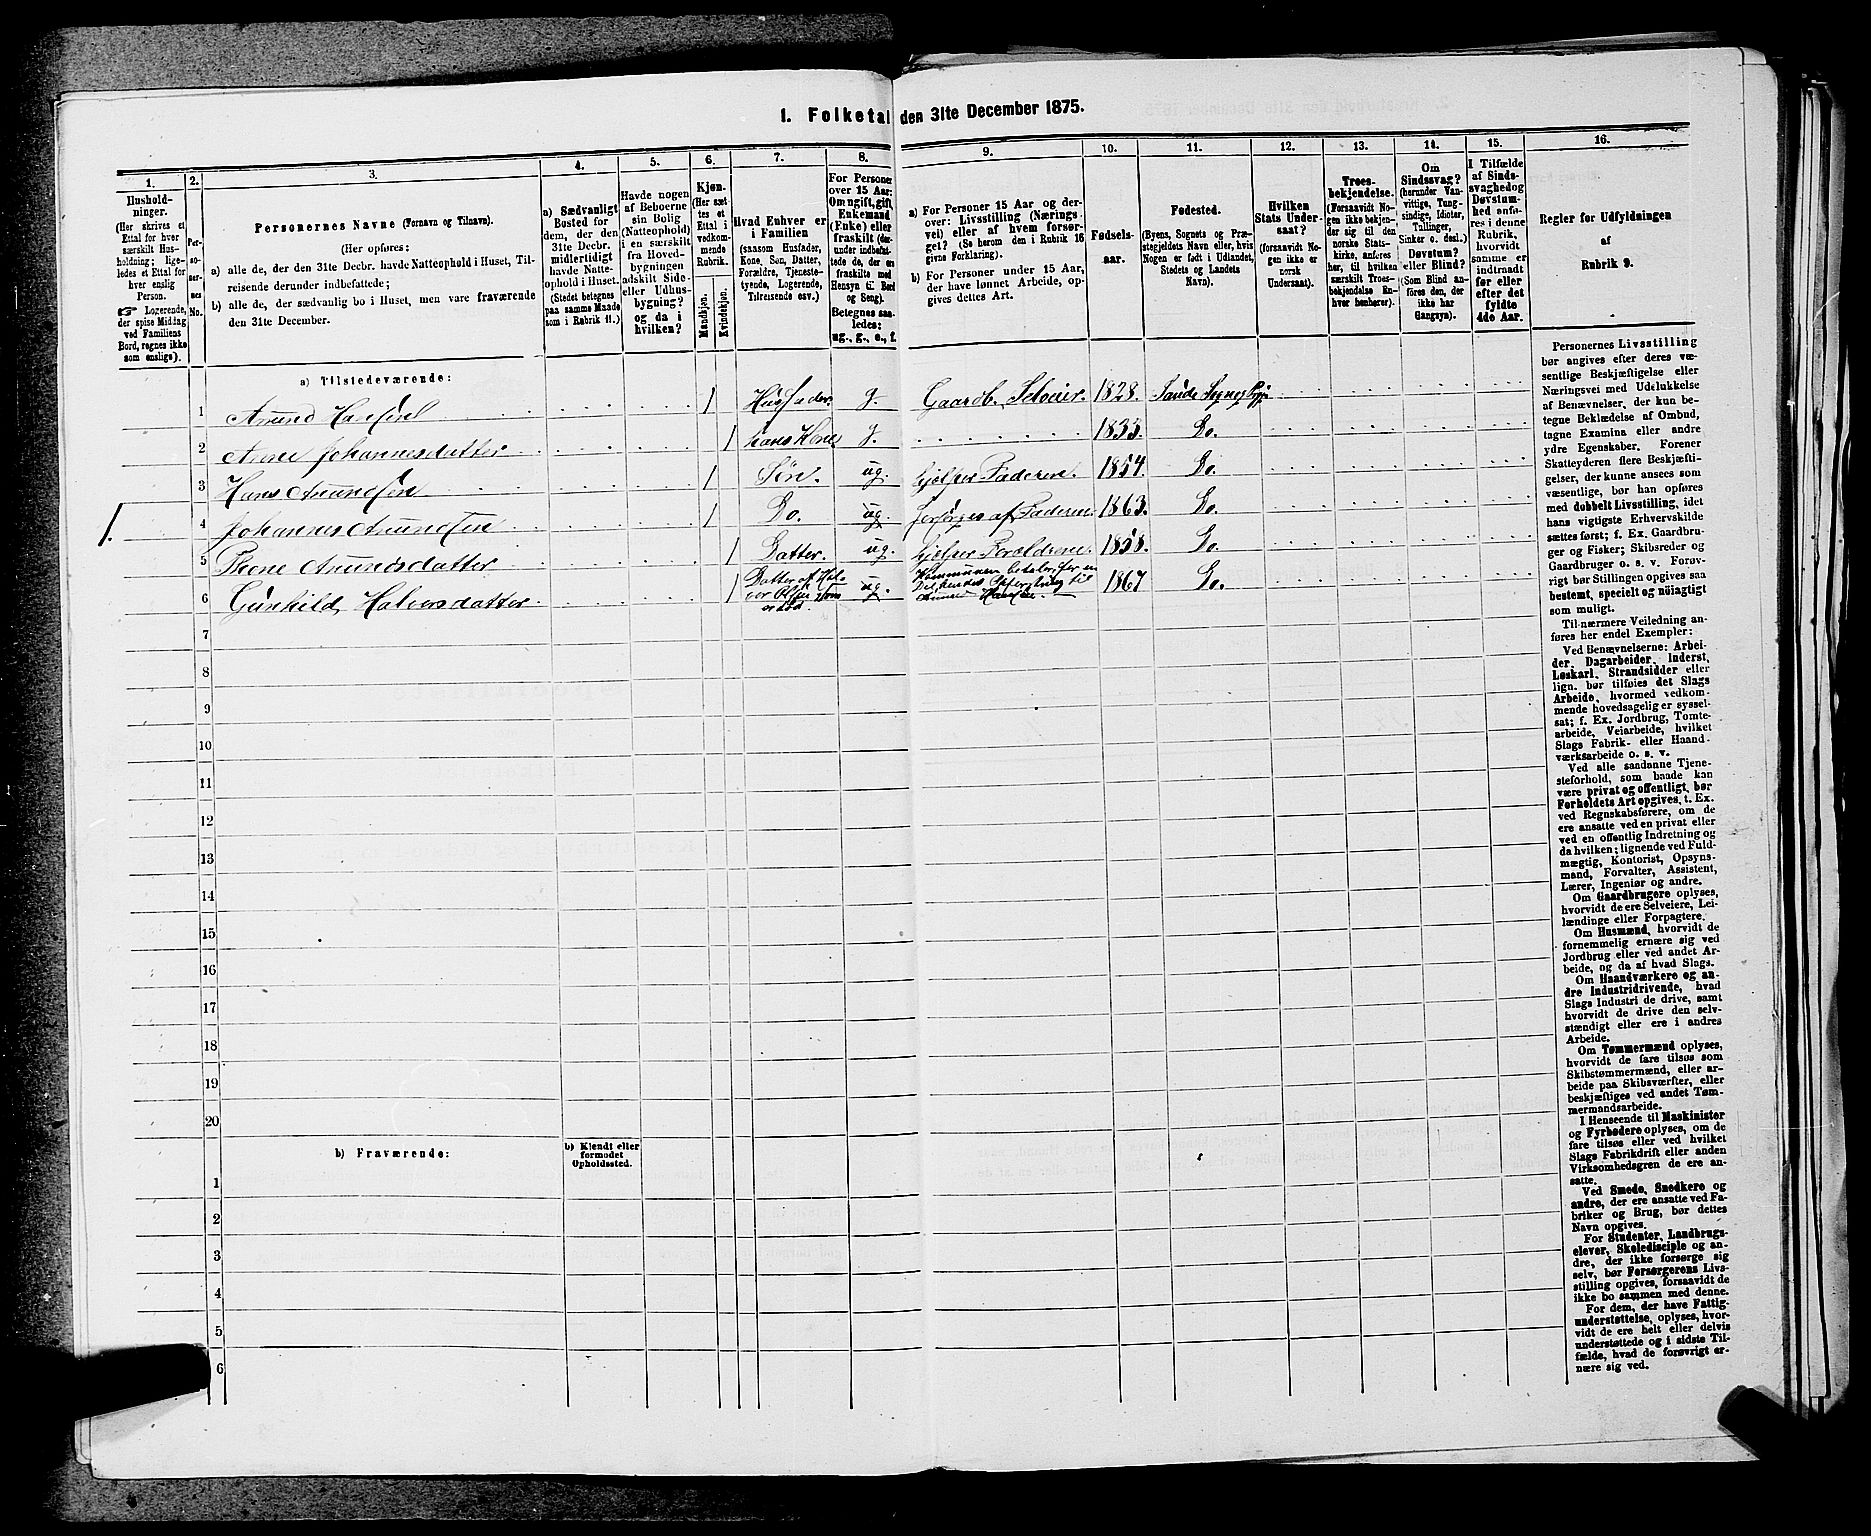 1. Folketal den 31te December 1875.
1.
Hushold-
ninger.
(Her skrives et
Ettal for hver
særskilt Hus-
holdning; lige-
ledes et Ettal for
hver enslig
Person.
☞ Logerende,
der spise Middag
ved Familiens
Bord, regnes ikke
som enslige).
2.
Per-
so-
ner-
nes
No.
3.
Personernes Navne (Fornavn og Tilnavn).
(Her opføres:
a) alle de, der den 31te Decbr. havde Natteophold i Huset, Til-
reisende derunder indbefattede;
b) alle de, der sædvanlig bo i Huset, men vare fraværende
den 31te December.
4.
a) Sædvanligt
Bosted for
dem, der den
31te Decbr.
midlertidigt
havde Natte-
ophold i Huset.
(Stedet betegnes
paa samme Maade
som i Rubrik 11.)
5.
Havde nogen
af Beboerne
sin Bolig
(Natteophold)
i en særskilt
fra Hoved-
bygningen
adskilt Side-
eller Udhus-
bygning?
og da i
hvilken?
6.
Kjøn.
(Her sæt
tes et
Ettal i
vedkom-
mende
Rubrik.
Mandkjøn.
Kvindekjøn.
7.
Hvad Enhver er
i Familien
(saasom Husfader,
Kone, Søn, Datter,
Forældre, Tjeneste-
tyende, Logerende,
Tilreisende osv.)
8.
For Personer
over 15 Aar:
Om ugift, gift,
Enkemand
(Enke) eller
fraskilt (der-
under indbefat-
tede de, der ere
fraskilte med
Hensyn til Bord
og Seng).
Betegnes saa-
ledes:
ug., g., e., f.
9.
a) For Personer 15 Aar og der-
over: Livsstilling (Nærings-
vei) eller af hvem forsør-
get? (Se herom den i Rubrik 16
givne Forklaring).
b) For Personer under 15 Aar,
der have lønnet Arbeide, op-
gives dettes Art.
10.
Fødsels-
aar.
11.
Fødested.
(Byens, Sognets og Præ-
stegjeldets Navn eller, hvis
Nogen er født i Udlandet,
Stedets og Landets
Navn).
12.
Hvilken
Stats Under-
saat?
(forsaavidt No-
gen ikke er
norsk
Undersaat).
13.
Troes-
bekjendelse.
(Forsaavidt No-
gen ikke bekjen-
der sig til den
norske Stats-
kirke, anføres
her, til hvilken
særskilt Troes-
bekjendelse En-
hver henhører).
14.
Om
Sindssvag?
(herunder Van-
vittige, Tung-
sindige, Idioter,
Tullinger,
Sinker o. desl.)
Døvstum?
eller Blind?
(Som Blind an-
føres den, der
ikke har
Gangsyn).
15.
I Tilfælde
af Sinds-
svaghed og
Døvstum-
hed anfø-
res i denne
Rubrik,
hvorvidt
samme er
indtraadt
før eller
efter det
fyldte
4de Aar.
16.
Regler for Udfyldningen
af
Rubrik 9.
a) Tilstedeværende:
1 Amund Hansen 1 Husfader g. Gaardb. Selveier 1828. Sande
2 Anne Johannesdatter 1 hans Kone g. 1833. Do.
3 Hans Amundsen 1 Søn. ug. hjelper Faderen. 1854. Do.
1.
4 Johannes Amundsen 1 Do. ug. forsørges af Faderen. 1863. Do.
5 Amundsdatter 1 Datter. ug. hjelper Forældrene. 1858. Do.
6 Gunhild Halvorsdatter 1 Datter af Hal-
vor Olsen som
er død. ug. Kommunen betaler for en
til
Amund Hansen. 1867 Do.
7
8
9
10
11
12
13
14
15
16
17
18
19
20
b) Fraværende:
b) Kjendt eller
formodet
Opholdssted.
1
2
3
4
5
6
Personernes Livsstilling
bør angives efter deres væ-
sentlige Beskjæftigelse eller
Næringsvei med Udelukkelse
af Benævnelser, der kun be-
tegne Beklædelse af Ombud,
tagne Examina eller andre
ydre Egenskaber. Forener
Skatteyderen flere Beskjæfti-
gelser, der kunne ansees som
væsentlige, bør han opføres
med dobbelt Livsstilling, idet
hans vigtigste Erhvervskilde
sættes først; f. Ex. Gaardbru-
ger og Fisker; Skibsreder og
Gaardbruger o. s. v. Forøv-
rigt bør Stillingen opgives saa
bestemt, specielt og nøiagtigt
som muligt.
Til nærmere Veiledning an-
føres her endel Exempler:
Ved Benævnelserne: Arbei-
der, Dagarbeider, Inderst,
Løskarl, Strandsidder eller
lign. bør tilføies det Slags
Arbeide, hvormed vedkom-
mende hovedsagelig er syssel-
sat; f. Ex. Jordbrug, Tomte-
arbeide, Veiarbeide, hvilket
Slags Fabrik- eller Haand-
værksarbeide o. s. v.
Ved alle saadanne Tjene-
steforhold, som baade kan
være privat og offentligt, bør
Forholdets Art opgives, t. Ex.
ved Regnskabsførere, om de
ere ansatte ved en privat eller
ved en offentlig Indretning og
da hvilken; lignende ved Fuld-
mægtig, Kontorist, Opsyns-
mand, Forvalter, Assistent,
Lærer, Ingeniør og andre.
Om Gaardbrugere oplyses,
hvorvidt de ere Selveiere, Lei-
lændinge eller Forpagtere.
Om Husmænd, hvorvidt de
fornemmelig ernære sig ved
Jordbrug eller ved andet Ar-
beide, og da af hvad Slags.
Om Haandværkere og an-
dre Industridrivende, hvad
Slags Industri de drive, samt
hvorvidt de drive den selv-
stændigt eller ere i andres
Arbeide.
Om Tømmermænd oplyses,
hvorvidt de fare tilsøs som
Skibstømmermænd, eller ar-
beide paa Skibsværfter, eller
beskjæftiges ved andet Tøm-
mermandsarbeide.
I Henseende til Maskinister
og Fyrbødere oplyses, om de
fare tilsøs eller ved hvilket
Slags Fabrikdrift eller anden
Virksomhedsgren de ere an-
satte.
Ved Smede, Snedkere og
andre, der ere ansatte ved Fa-
briker og Brug, bør dettes
Navn opgives.
For Studenter, Landbrugs-
elever, Skoledisciple og an-
dre, der ikke forsørge sig
selv, bør Forsørgerens Livs-
stilling opgives, forsaavidt de
ikke bo sammen med denne.
For dem, der have Fattig-
understøttelse, oplyses, hvor-
vidt de ere helt eller delvis
understøttede og i sidste Til-
fælde, hvad de forøvrigt er-
nære sig ved.